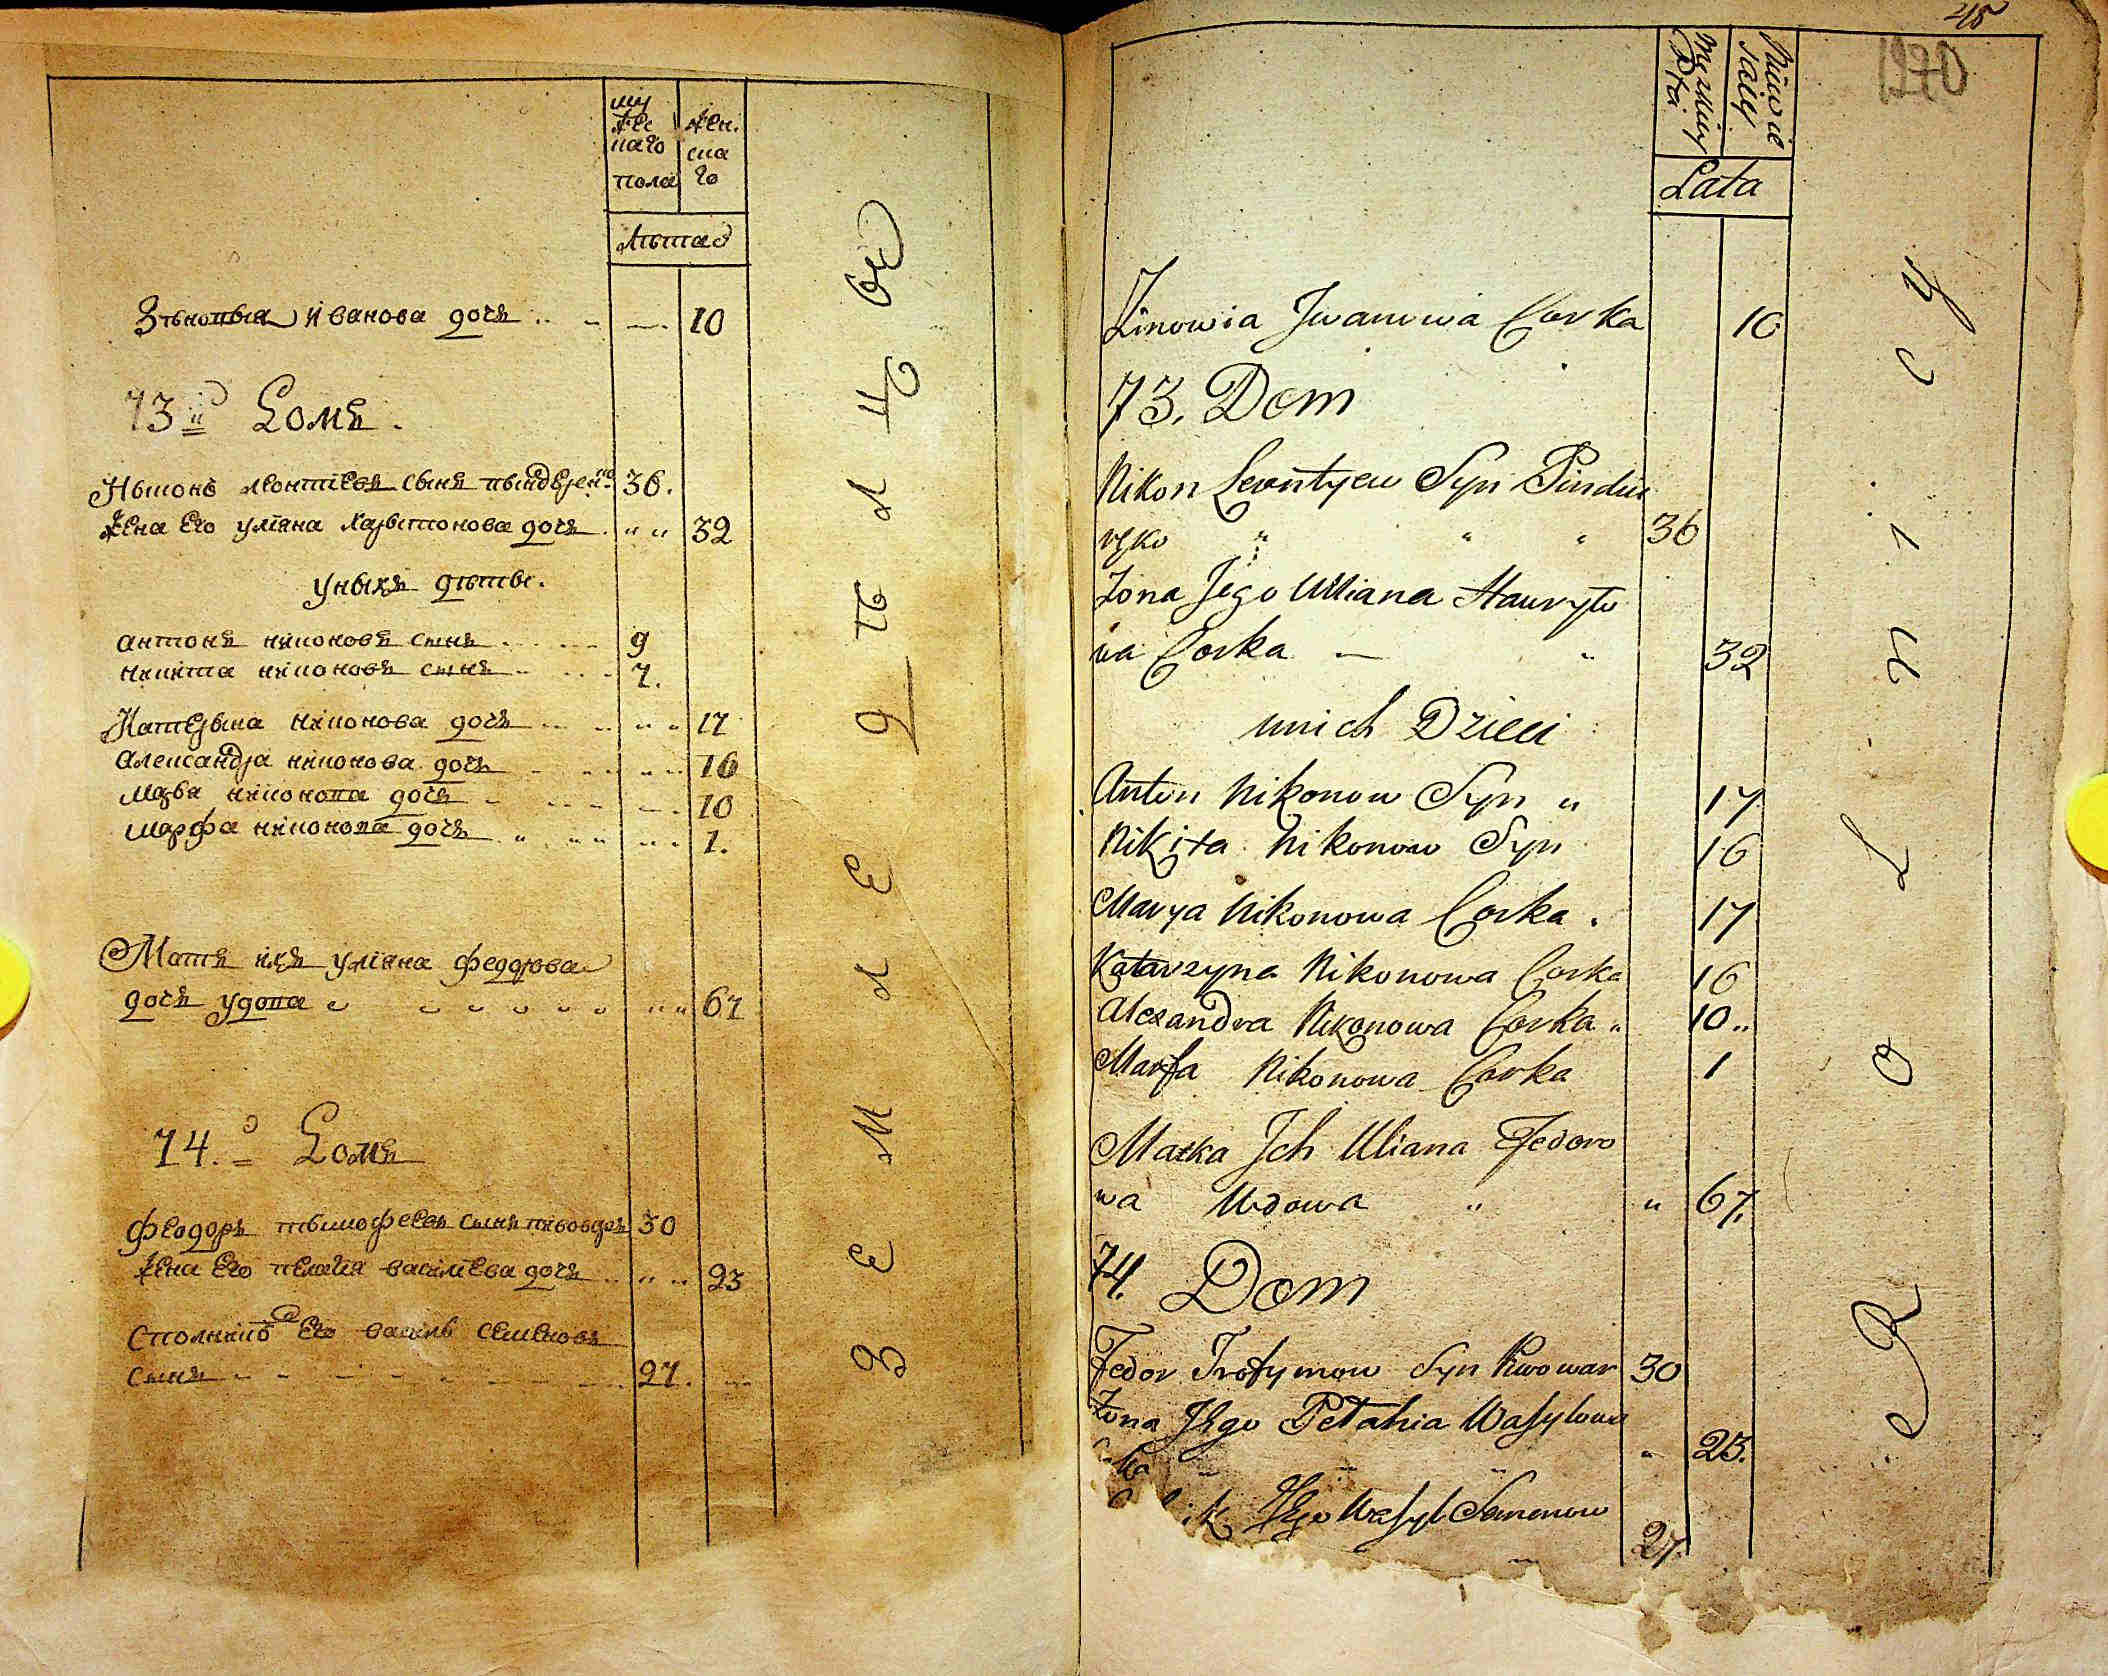 му
жес
каго
пола
жен.
ска
го
лѣтаъ
Зѣновия Иванова дочь 10
73й Домъ.
Никонъ леонтиевъ сынъ пиндюренко 36.
жена Его уліяна харитонова дочь 32
уныхъ дѣти.
антонъ никоновъ сынъ 9
никита никоновъ сынъ 7.
Катерина никонова дочь 17
александра никонова дочь 16
марва никонова дочь 10
марфа никонова дочь 1.
Мать ихъ уліяна федорова
дочь удова 67
74. Домъ
феодоръ тимофеевъ сынъ пивоваръ 30
жена Его пелагия василиева дочь 23
Сполникъ Его василь семеновъ
сынъ 27.
З Е М Л Е Д Ѣ Л Ц О В
45
1270
Męzkiey
Płci
Niewie
sciey
Lata
Zinowia Jwanowa Corka 10
73. Dom
Nikon Leontyew Syn Pindiu
ręko 36
Zona Jego Uliana Hauryto
wa Corka 32
unich Dzieci
Anton Nikonow Syn 17
Nikita Nikonow Syn 16
Marya Nikonowa Corka 17
Katarzyna Nikonowa Corka 16
Alexandra Nikonowa Corka 10
Marfa Nikonowa Corka 1
Matka Jch Uliana Fedoro
wa Wdowa 67.
74. Dom
Fedor Trofymow Syn Piwowar 30
Zona Jego Pelahia Wasylowa
ka 23.
ik Jego Wasyl Semenow
27.
R O L N I C Y